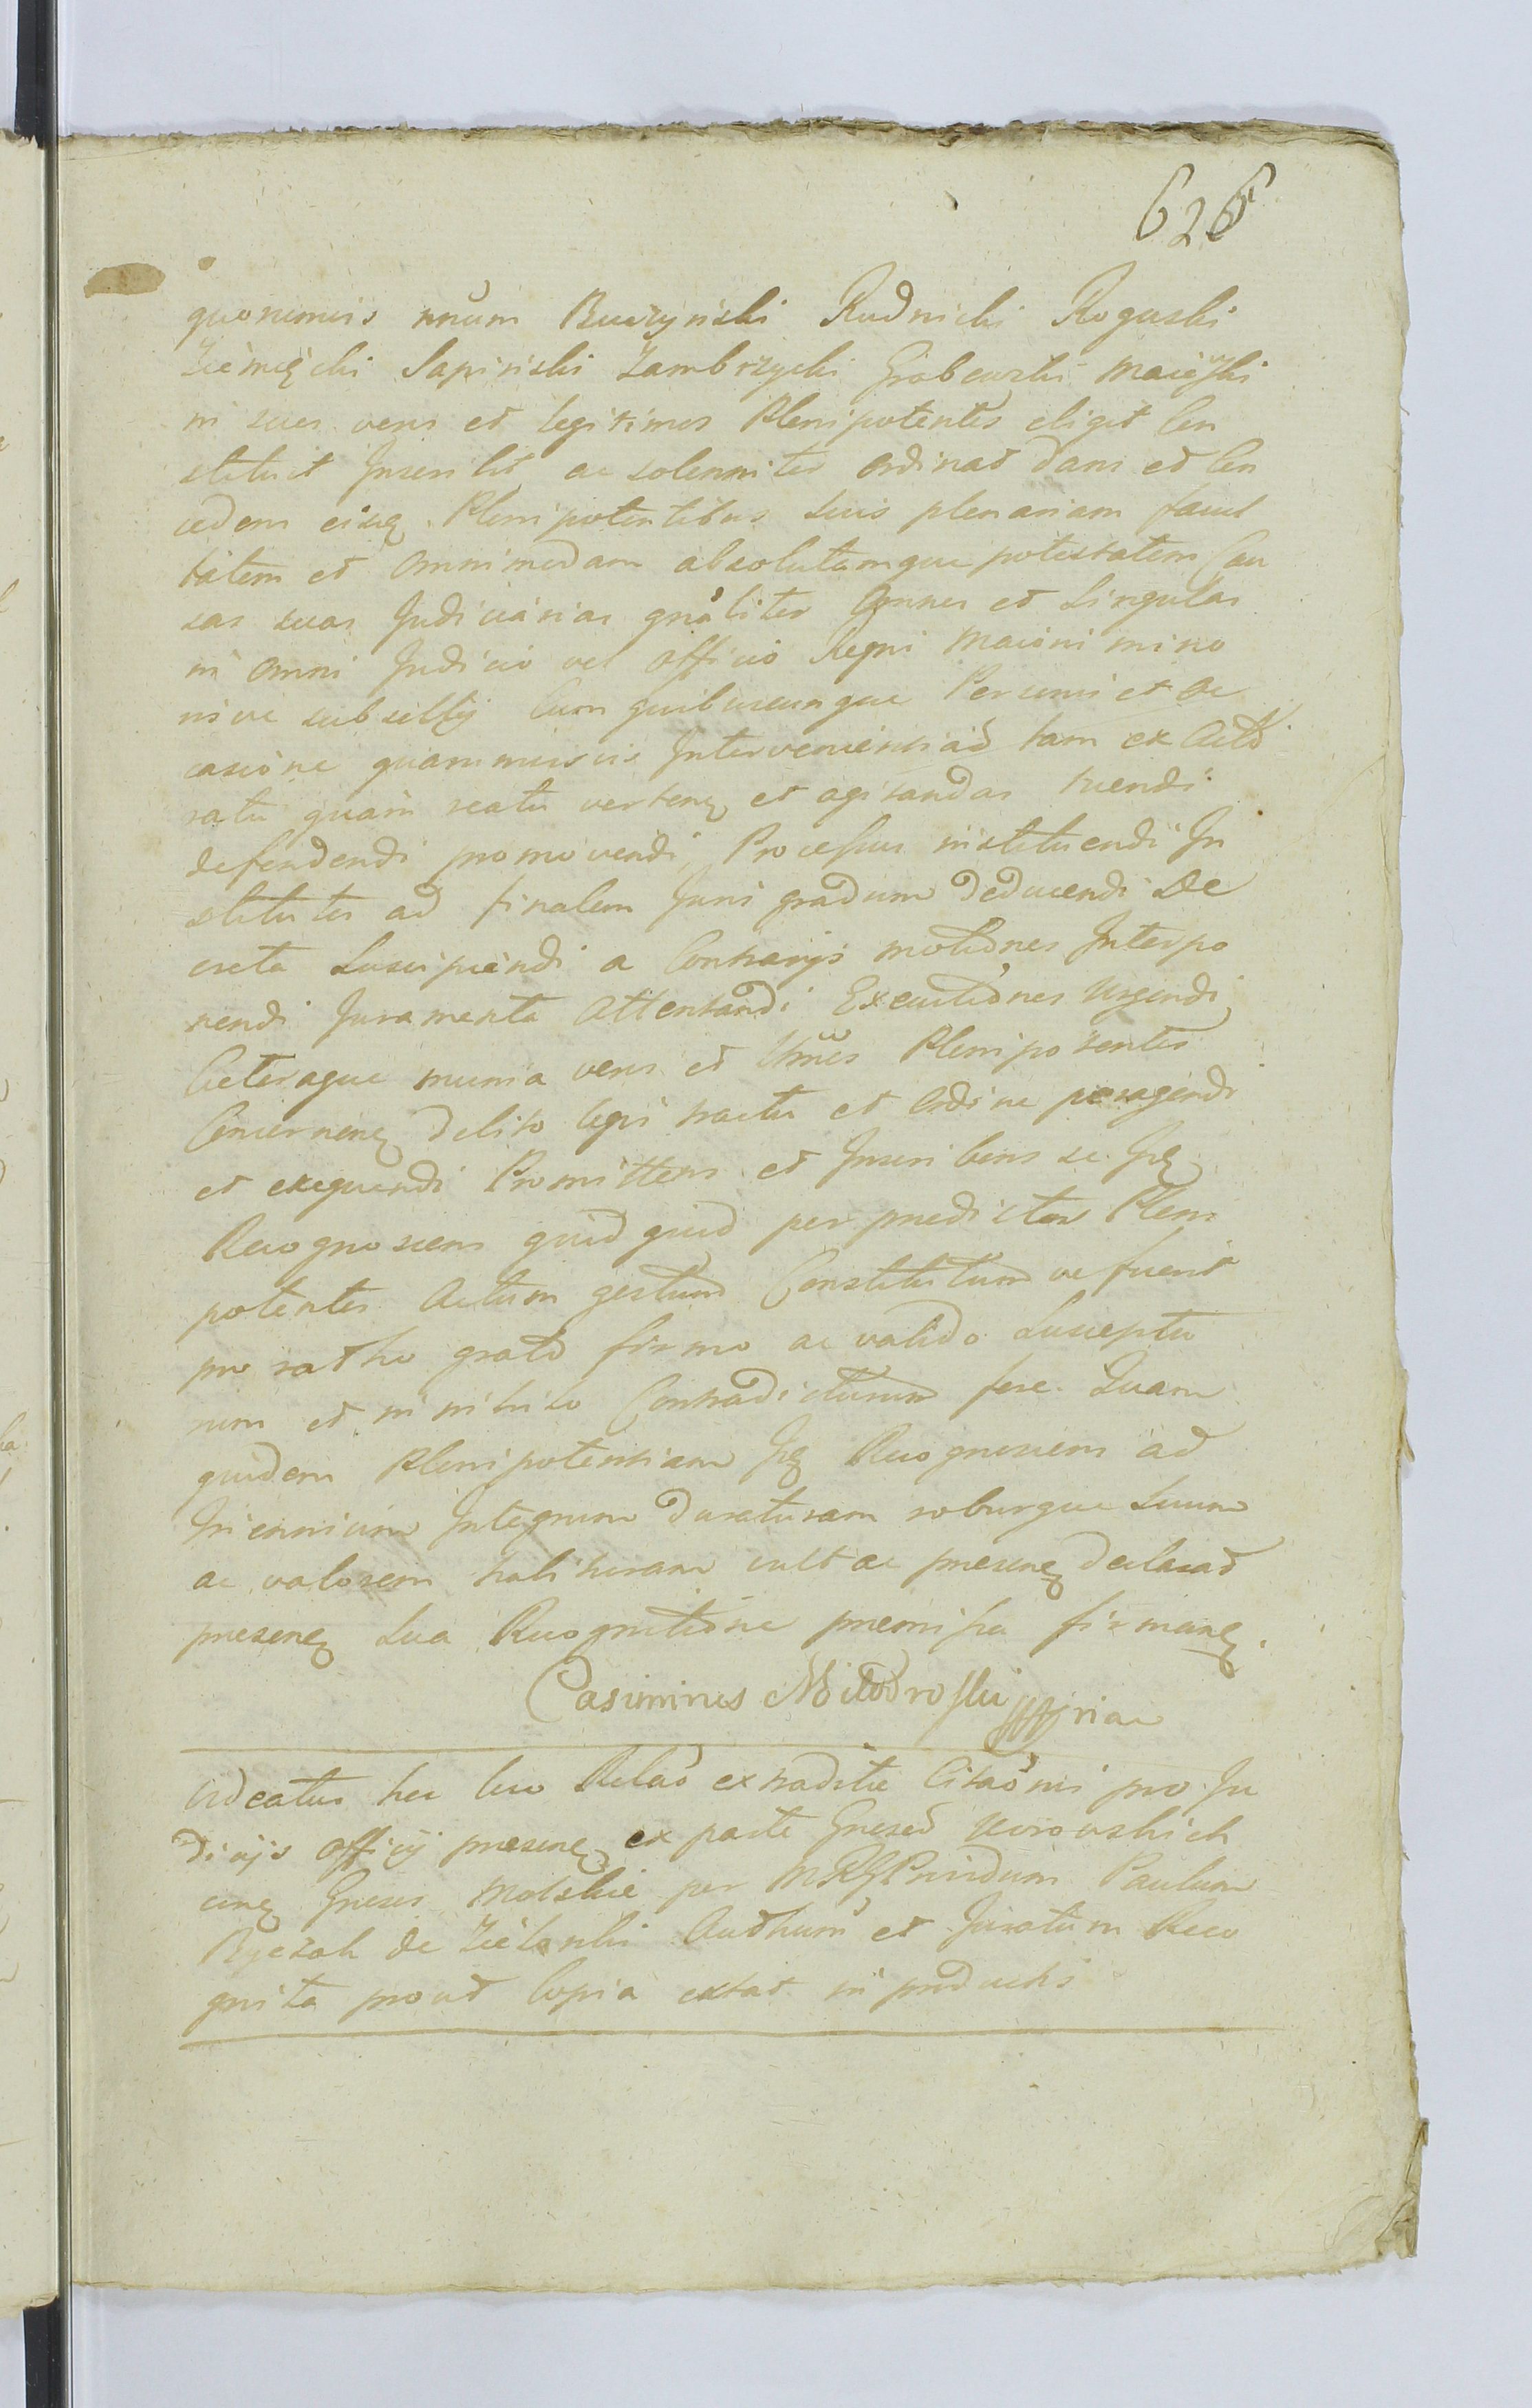 626
quonimvis nrum Buczynski Rudnicki Roguski
Ziemięcki Sapinski Zambrzycki Grabowski Maiewski
in suos veros et legitimos Plenipotentes eligit Con
stituit Inscribit ac solenniter ordinat dans et Con
cedens eisq Plenipotentibus suis plenariam facul
tatem et omnimodam absolutamque potestatem Cau
sas suas Judiciarias gnaliter omnes et singulas
in omni Judicio vel officio Regni maioris mino
risve subsellij Cum quibuscunque Personis et oc
casione quarumvis cis Intervenientiad tam ex Acto
ratu quam reatu verten et agitandas tuendi
defendendi promovendi Processus instituendi In
stitutos ad finalem Juris gradum deducendi De
creta suscipiendi a Contrarijs motiones Interpo
nendi Juramenta attentandi Executiones urgendi
Ceteraque munia veros et Plenipotentes
Concernen debito legis tractu et ordine peragendi
et exequendi Promittens et Inscribens se Ip
Recognoscens quidquid per predictos Pleni
potentes Actum gestum Constitutumve fuerit
pro ratho grato firmo ac valido suscepta
rum et in nihilo Contradicturum fore. Quam
quidem Plenipotentiam Ip Recognoscens ad
Triennium Integrum duraturam roburque suum
ac valorem habituram vult ac presen declarat
presen sua Recognitione premissa firman.
Casimirus Modro ski
Videatur hec loco Relao extraditae Citaonis pro Ju
dicijs officij presen ex parte Gnesed
cen Gnesos Molskie per Prvidum Paulum
de Zielonki Authum et Juratum Reco
gnita prout Copia extat in productis